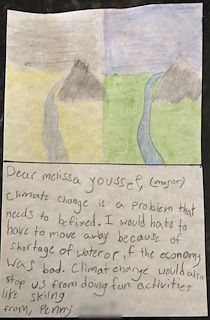 Dear melissa youssef, (mayor)
Climate change is a problem that
needs to be fixed. I would hate to
have to move away because of
shortage of water or, if the economy
was bad. Climat change would also
stop us from doing fun activities
like skiing
from, Penny